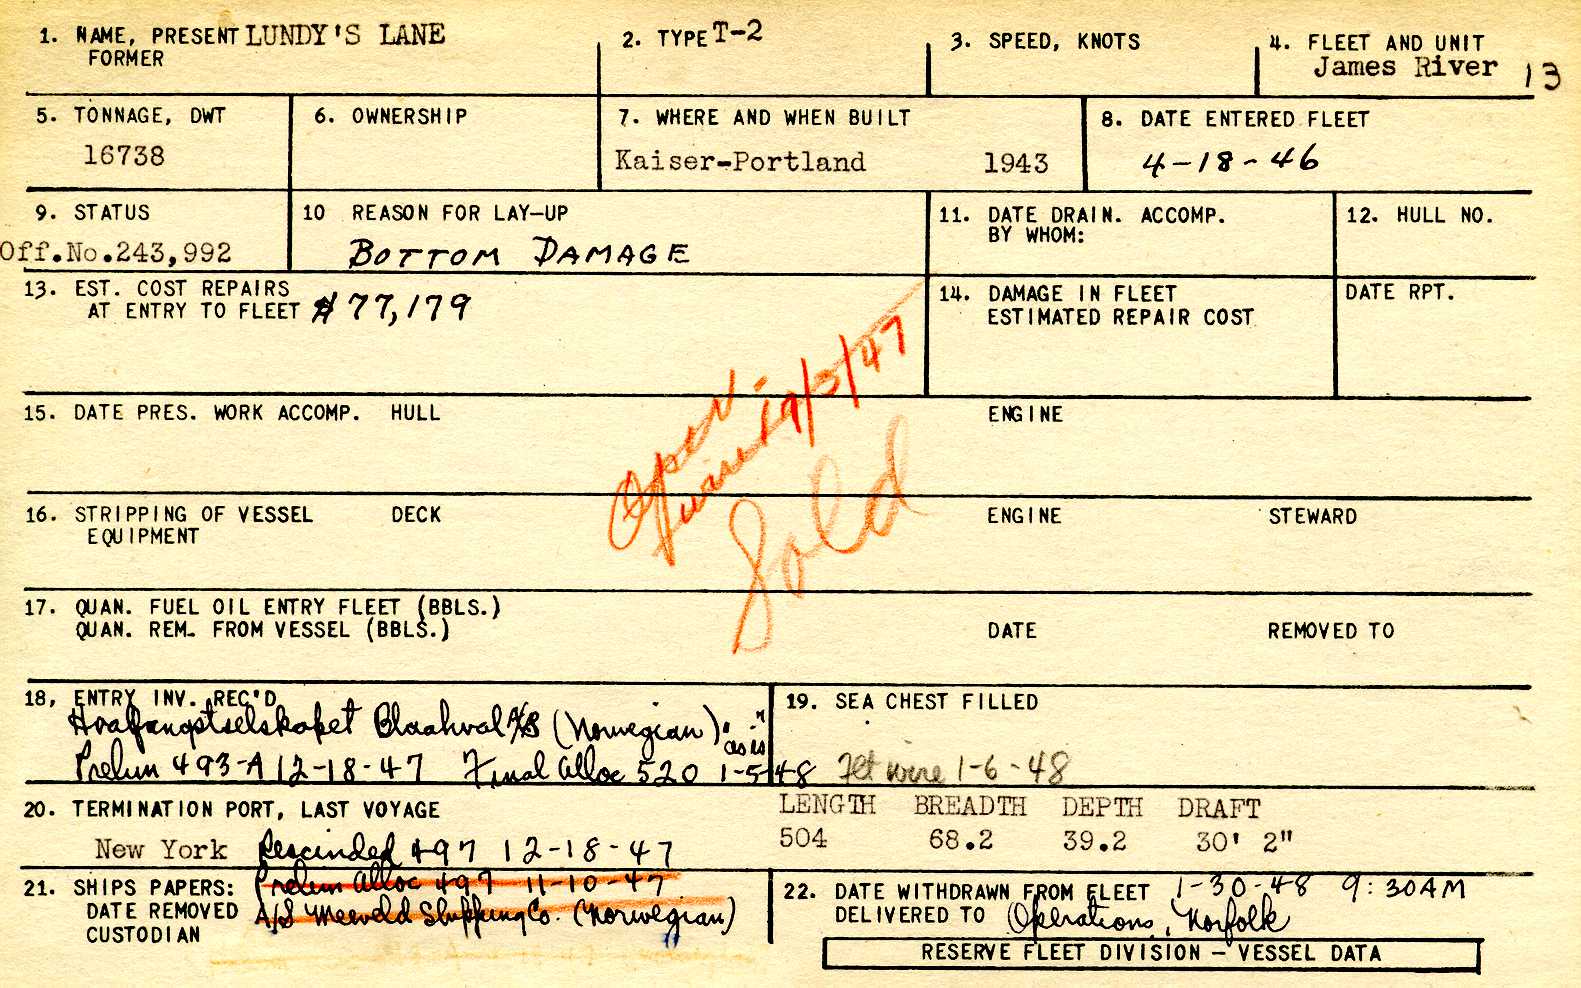 1. NAME, PRESENT LUNDY'S LANE
FORMER
2. TYPE T-2
3. SPEED, KNOTS
4. FLEET AND UNIT
James River 13
5. TONNAGE, DWT
16738
6. OWNERSHIP
7. WHERE AND WHEN BUILT
Kaiser-Portland 1943
8. DATE ENTERED FLEET
4-18-46
9. STATUS
Off.No.243,992
10 REASON FOR LAY-UP
BOTTOM DAMAGE
11. DATE DRAIN. ACCOMP.
BY WHOM:
12. HULL NO.
13. EST. COST REPAIRS
AT ENTRY TO FLEET $77,179
14. DAMAGE IN FLEET
ESTIMATED REPAIR COST
DATE RPT.
Oper.
wire 19/3/47
Sold
15. DATE PRES. WORK ACCOMP. HULL ENGINE
16. STRIPPING OF VESSEL DECK ENGINE STEWARD
EQUIPMENT
17. QUAN. FUEL OIL ENTRY FLEET (BBLS.)
QUAN. REM. FROM VESSEL (BBLS.) DATE REMOVED TO
18, ENTRY INV. REC'D
Blaahval A/S (Norwegian) "as is"
Prelim 493-A 12-18-47 Final Alloc 520 1-5-48
19. SEA CHEST FILLED
Flt wire 1-6-48
20. TERMINATION PORT, LAST VOYAGE
New York Rescinded 497 12-18-47
LENGTH BREADTH DEPTH DRAFT
504 68.2 39.2 30' 2"
21. SHIPS PAPERS: Prelim Alloc 497 11-10-47
DATE REMOVED A/S Shipping Co. (Norwegian)
CUSTODIAN
22. DATE WITHDRAWN FROM FLEET 1-30-48 9:30AM
DELIVERED TO Operations, Norfolk
RESERVE FLEET DIVISION - VESSEL DATA